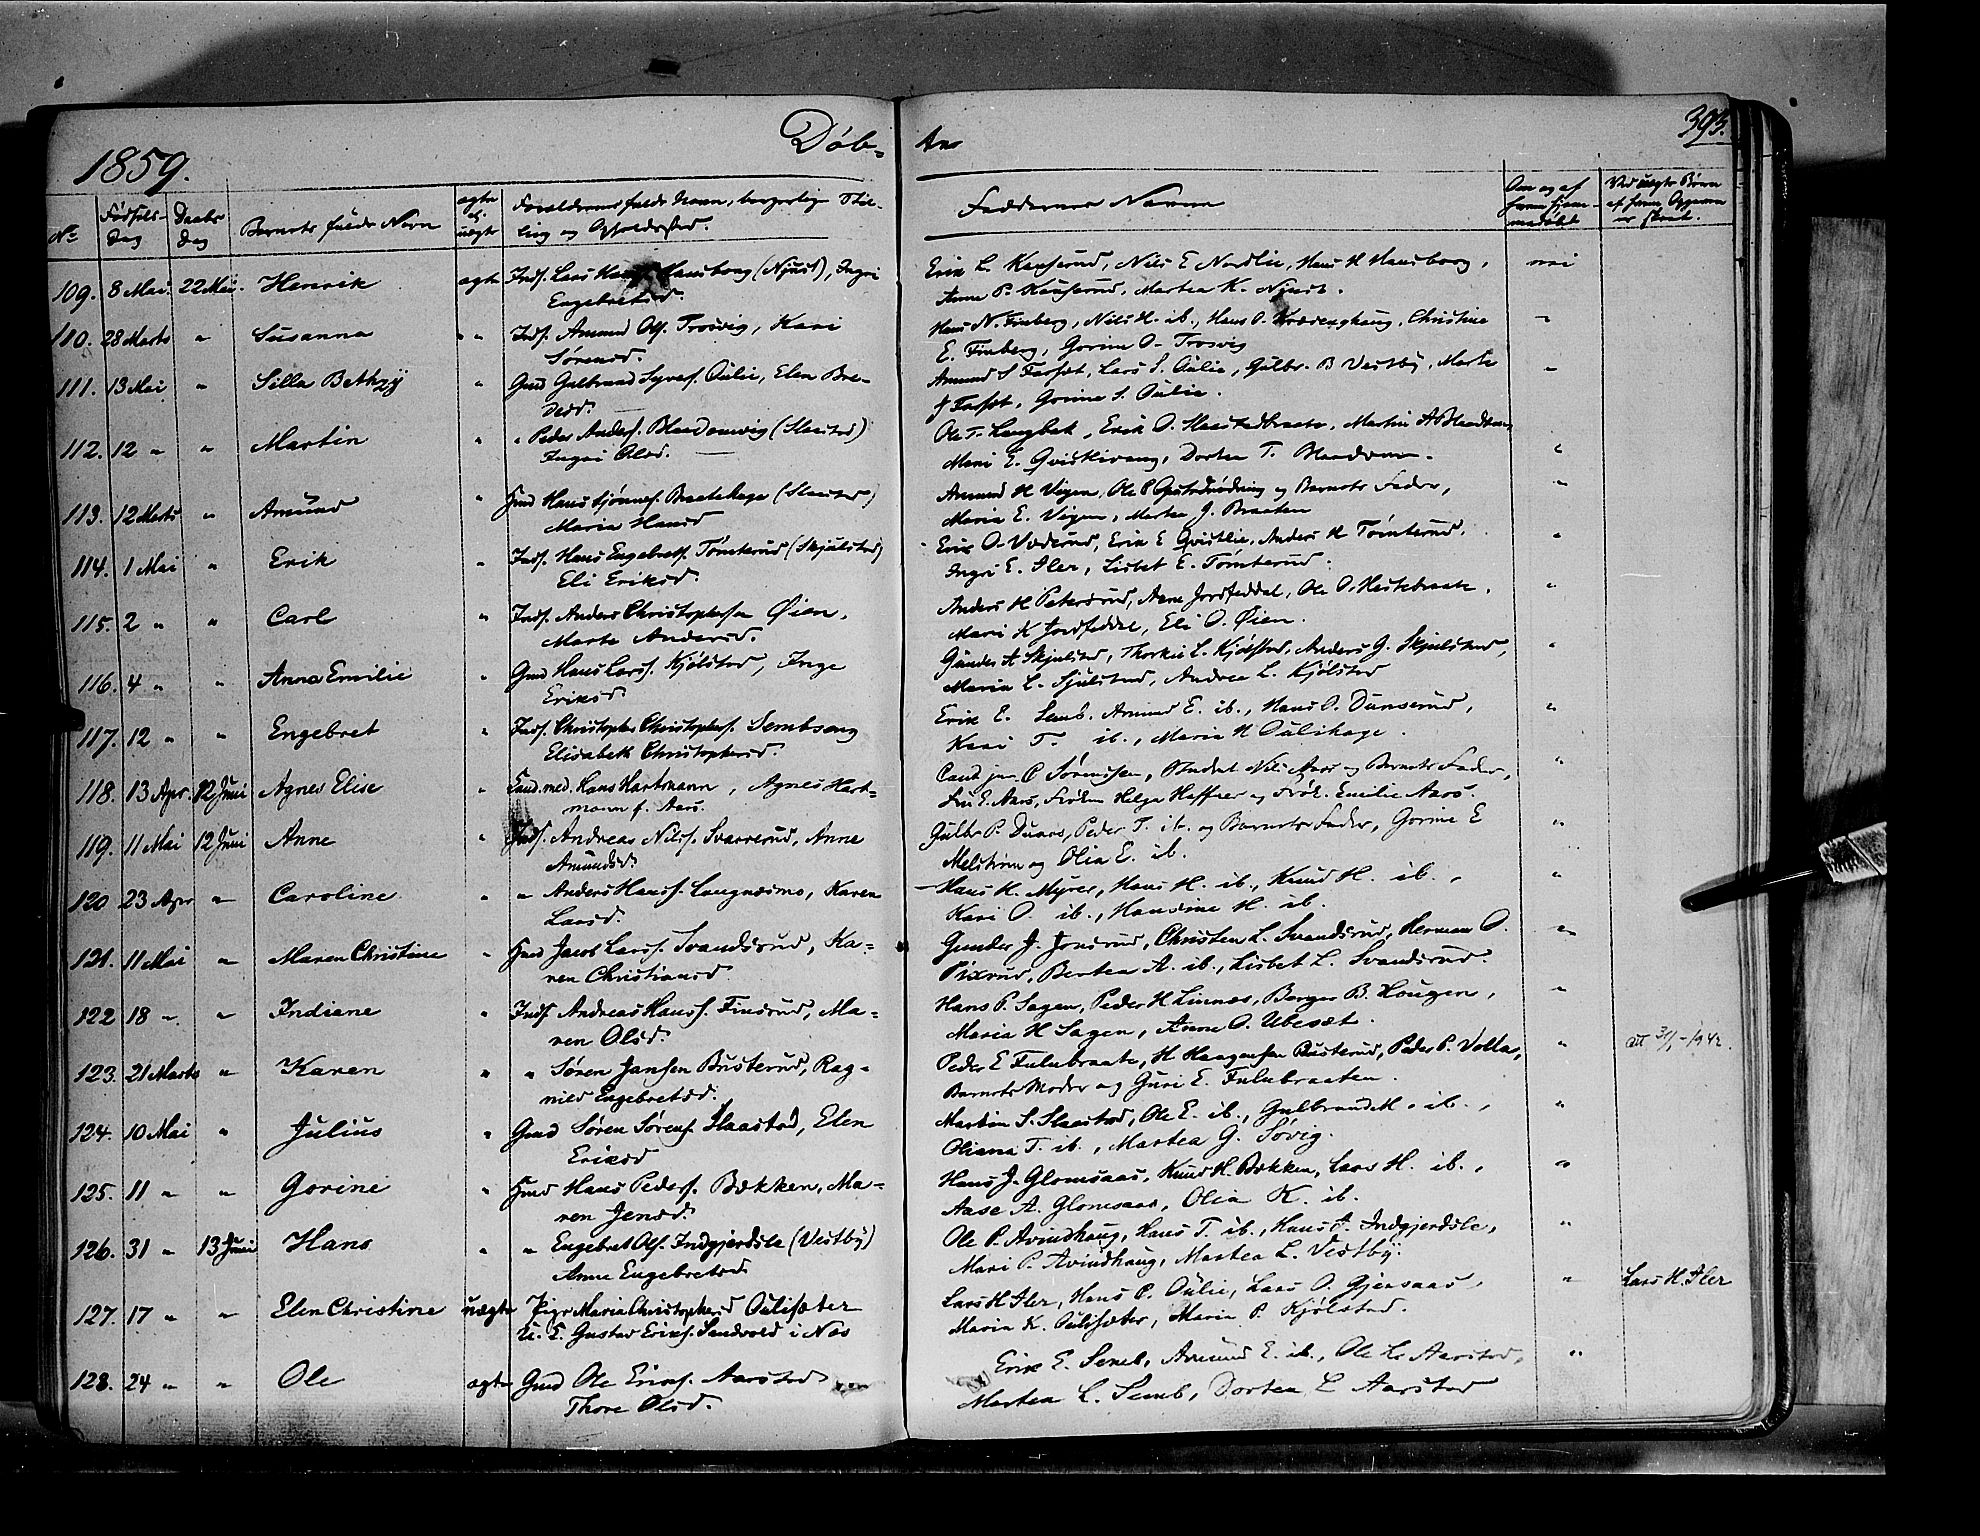 1859.
Døb- te
393.
No
Fødsels-
dag
Daabs
dag
Barnets fulde Navn
ægte
el.
uægte
Forældrenes fulde Navn, borgerlig Stil-
ling og Opholdssted.
Faddernes Navne
Om og af
hvem hjem-
medøbt
Ved uægte Børn
af hvem Opgaven
er skreat.
109. 8 Mai. 22 Mai. Henrik ægte Inds. Lars Hansborg (Njust), Ingri
Engebretsd.
Erik L. Kauserud, Nils E Nordlie, Hans H Hansborg,
Anne P. Kauserud, Martea K. Njust.
nei
110. 28 Marts " Susanna " Inds. Amund Ols. Trosvig, Kari
Sørensd.
Hans N. Finberg, Nils H. ib., Hans O. Christine
E. Finberg, Gorine O. Trosvig
111. 13 Mai " Silla Bethzy " Gmd Gulbrand Syvers. Oulie, Elen Bre-
Amund S Farset, Lars S. Oulie, Gulbr. B Vestby, Marte
J Farset, Gorine S. Oulie.
112. 12 " " Martin " " Peder Anders. (Slaastad)
Ingri Olsd.
Ole T. Langbak, Erik O. Martin
Mari E. Qvistlivang, Dortea T.
113. 12 Marts " Amund " Hmd Hans Braatehage (Slaastad)
Maria Hansd
Amund H Vigen, Ole og Barnets Fader,
Maria E. Vigen, Martea J. Braaten
114. 1 Mai " Erik " Inds. Hans Engebrets. Tømterud (Skjulstad)
Eli Eriksd.
Erik O. Erik E Qvistlie, Anders H Tømterud,
Ingri E. Iler, Lisbet E. Tømterud.
115. 2 " " Carl " Inds. Anders Christophersen Øien,
Marte Andersd.
Anders H Petersrud, Arne Jordfaldet, Ole O. Hestebraate,
Mari K Jordfaldet, Eli O. Øien.
116. 4 " " Anna Emilie " Gmd Hans Larss. Kjølstad, Inge
Eriksd
Gunder A Skjulstad, Thorkil L. Kjølstad, Anders G. Skjulstad,
Maria L. Sjulstad, Andrea L. Kjølstad
117. 12 " " Engebret " Inds. Christopher Christophers. Sembseng
Elisabeth Christophersd.
Erik E. Semb. Amund E. ib., Hans O. Dunserud,
Kari T. ib., Maria H Oulihage.
118. 13 Apr. 12 Juni Agnes Elise " Cand. med. Hans Hartmann, Agnes Hart-
mann f. Aars.
Cand jur. C Sørenssen, Student Nils Aars og Barnets Fader,
Fru E. Aars, Frøken Helga Heffner og Frøk. Emilie Aars.
119. 11 Mai 12 Juni Anne " Inds. Andreas Nilss. Svarrerud, Anne
Amundsd.
Gulbr P. Duaas, Peder T. ib. og Barnets Fader, Gorine E
og Olia E. ib.
120 23 Apr " Caroline " " Anders Hanss. Langnæsmo, Karen
Larsd.
Hans H. Myrer, Hans H. ib., Knud H. ib.,
Kari O. ib., Hansine H. ib.
121. 11 Mai " Maren Christine " Hmd Jacob Larss. Svandsrud, Ka-
ren Christiansd
Gunder J. Jonsrud, Christen L. Svandsrud, Herman O.
Pixrud, Bertea A. ib., Lisbet L. Svandsrud.
122 18 " " Indiane " Inds Andreas Hanss. Finsrud, Ma-
ren Olsd.
Hans P. Sagen, Peder H. Linnæs, Borger B. Hougen,
Maria H Sagen, Anne O. Ubesæt.
att 31/ -1942.
123. 21 Marts " Karen " " Søren Jansen Busterud, Rag-
nild Engebretsd.
Peder E Fulubraate, H Haagensen Busterud, Peder P. Volla,
Barnets Moder og Guri E. Fulubraaten.
124. 10 Mai " Julius " Gmd Søren Sørens. Slaastad, Elen
Eriksd
Martin S. Slaastad, Ole E. ib., Gulbrand M. ib.,
Oliana T. ib., Martea G. Søvig.
125. 11 " " Gorine " Hmd Hans Peders. Bækken, Ma-
ren Jensd.
Hans J. Glomsaas, Knud H. Bækken, Lars H. ib.,
Aase A. Glomsaas, Olia K. ib.
126. 31 " 13 Juni Hans " " Engebret Ols. Indgjerdsle (Vestby)
Anne Engebretsd.
Ole P. Avindhaug, Hans T. ib., Hans A. Indgjerdsle,
Mari P. Avindhaug, Martea L. Vestby.
127. 17 " " Elen Christine uægte Pige Maria Christophersd Oulisæter
U. E. Gustav Eriks. Sandvold i Næs
Lars H Iler, Hans P. Oulie, Lars O. Gjersaas,
Maria K. Oulisæter, Maria P. Kjølstad.
Lars H. Iler
128. 24 " " Ole ægte Gmd Ole Eriks. Aarstad
Thore Olsd.
Erik E. Semb, Amund E. ib., Ole L. Aarstad,
Martea L. Semb, Dortea L Aarstad